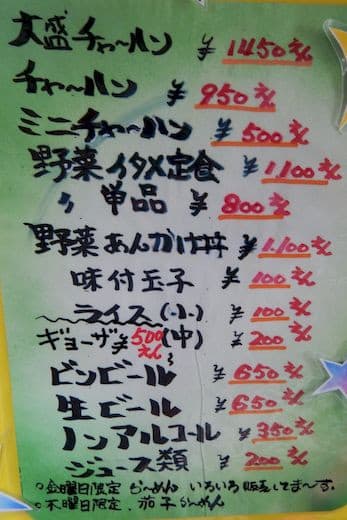 大盛チャ〜ハン ¥1450えん
チャ〜ハン ¥950えん
ミニチャ〜ハン ¥500えん
野菜イタメ定食 ¥1,100えん
〃 単品 ¥800えん
野菜あんかけ丼 ¥1,100えん
味付玉子 ¥100えん
ライス(小) ¥100えん
ギョーザ¥500えん (中) ¥200えん
ビンビール ¥650えん
生ビール ¥650えん
ノンアルコール ¥350えん
ジュース類 ¥200えん
○金曜日限定 ら〜めん いろいろ販売してま〜す。
○木曜日限定、茄子ら〜めん